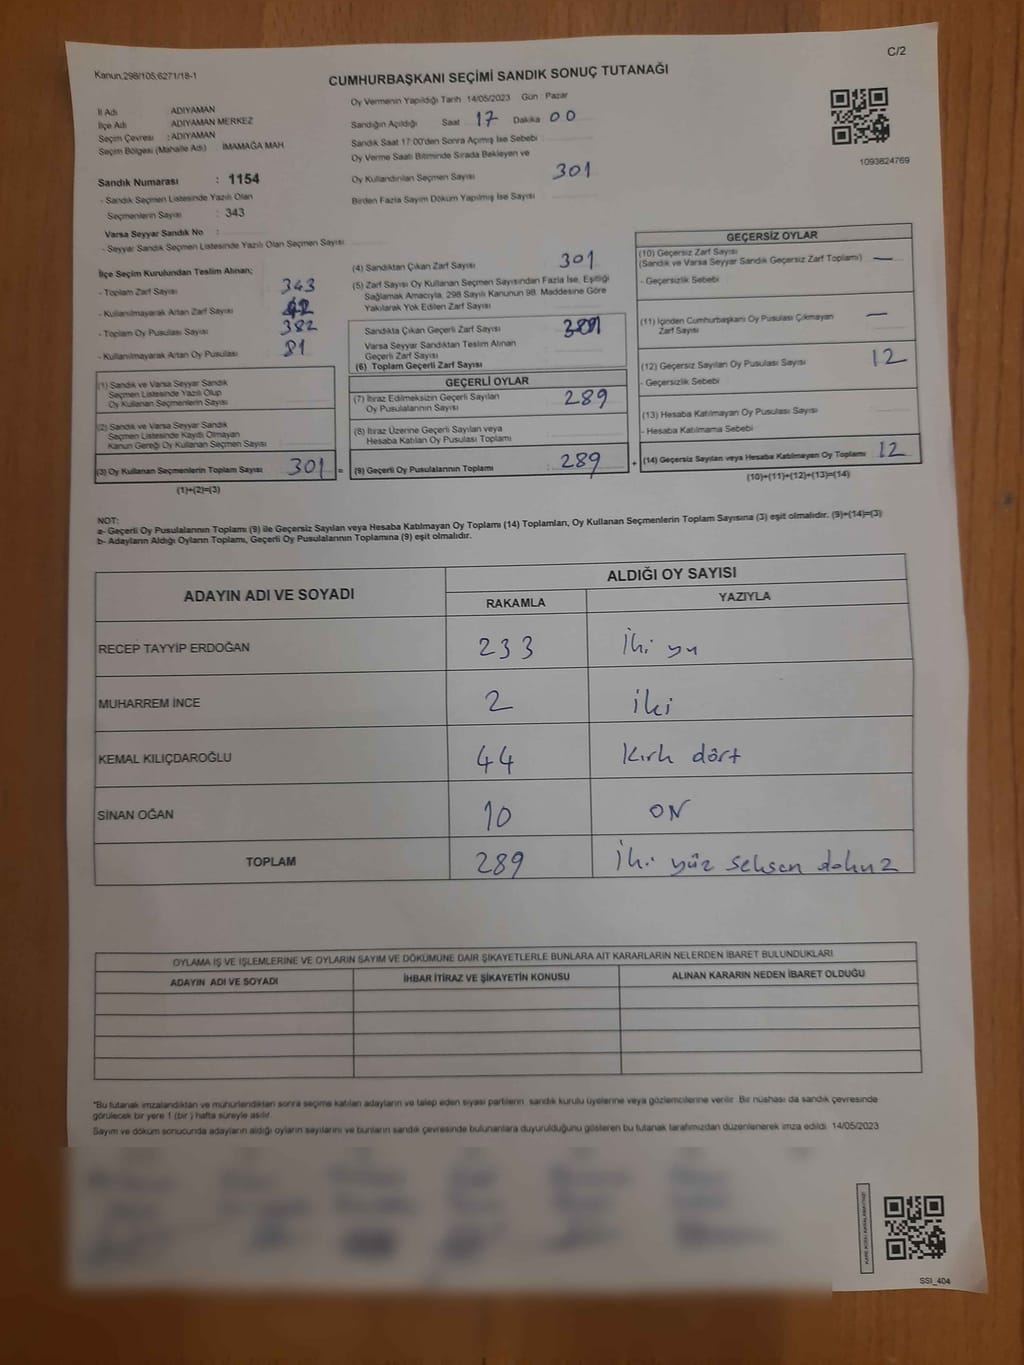 C/2
Kanun,298/105;6271/18-1
CUMHURBAŞKANI SEÇİMİ SANDIK SONUÇ TUTANAĞI
İl Adı ADIYAMAN
İlçe Adı ADIYAMAN MERKEZ
Seçim Çevresi : ADIYAMAN
Seçim Bölgesi (Mahalle Adı) İMAMAĞA MAH
Sandık Numarası : 1154
- Sandık Seçmen Listesinde Yazılı Olan
Seçmenlerin Sayısı : 343
Varsa Seyyar Sandık No :
- Seyyar Sandık Seçmen Listesinde Yazılı Olan Seçmen Sayısı
Oy Vermenin Yapıldığı Tarih 14/05/2023 Gün : Pazar
Sandığın Açıldığı Saat 17 Dakika 00
Sandık Saat 17:00'den Sonra Açımış İse Sebebi
Oy Verme Saati Bitiminde Sırada Bekleyen ve
Oy Kullandırılan Seçmen Sayısı 301
Birden Fazla Sayım Döküm Yapılmış İse Sayısı
1093824769
İlçe Seçim Kurulundan Teslim Alınan;
- Toplam Zarf Sayısı 343
- Kullanılmayarak Artan Zarf Sayısı 42
- Toplam Oy Pusulası Sayısı 382
- Kullanılmayarak Artan Oy Pusulası 81
(1) Sandık ve Varsa Seyyar Sandık
Seçmen Listesinde Yazılı Olup
Oy Kullanan Seçmenlerin Sayısı
(2) Sandık ve Varsa Seyyar Sandık
Seçmen Listesinde Kaydı Olmayan
Kanun Gereği Oy Kullanan Seçmen Sayısı
(3) Oy Kullanan Seçmenlerin Toplam Sayısı 301 =
(1)+(2)=(3)
(4) Sandıktan Çıkan Zarf Sayısı 301
(5) Zarf Sayısı Oy Kullanan Seçmen Sayısından Fazla İse, Eşitliği
Sağlamak Amacıyla, 298 Sayılı Kanunun 98. Maddesine Göre
Yakılarak Yok Edilen Zarf Sayısı
Sandıkta Çıkan Geçerli Zarf Sayısı
Varsa Seyyar Sandıktan Teslim Alınan
Geçerli Zarf Sayısı
(6) Toplam Geçerli Zarf Sayısı
GEÇERLİ OYLAR
(7) İtiraz Edilmeksizin Geçerli Sayılan
Oy Pusulalarının Sayısı 289
(8) İtiraz Üzerine Geçerli Sayılan veya
Hesaba Katılan Oy Pusulası Toplamı
(9) Geçerli Oy Pusulalarının Toplamı : 289 +
GEÇERSİZ OYLAR
(10) Geçersiz Zarf Sayısı
(Sandık ve Varsa Seyyar Sandık Geçersiz Zarf Toplamı) —
- Geçersizlik Sebebi
(11) İçinden Cumhurbaşkanı Oy Pusulası Çıkmayan
Zarf Sayısı —
(12) Geçersiz Sayılan Oy Pusulası Sayısı 12
- Geçersizlik Sebebi
(13) Hesaba Katılmayan Oy Pusulası Sayısı
- Hesaba Katılmama Sebebi
(14) Geçersiz Sayılan veya Hesaba Katılmayan Oy Toplamı 12
(10)+(11)+(12)+(13)=(14)
NOT:
a- Geçerli Oy Pusulalarının Toplamı (9) ile Geçersiz Sayılan veya Hesaba Katılmayan Oy Toplamı (14) Toplamları, Oy Kullanan Seçmenlerin Toplam Sayısına (3) eşit olmalıdır. (9)+(14)=(3)
b- Adayların Aldığı Oyların Toplamı, Geçerli Oy Pusulalarının Toplamına (9) eşit olmalıdır.
ADAYIN ADI VE SOYADI ALDIĞI OY SAYISI
RAKAMLA YAZIYLA
RECEP TAYYİP ERDOĞAN 233 İki yu
MUHARREM İNCE 2 iki
KEMAL KILIÇDAROĞLU 44 Kırk dört
SİNAN OĞAN 10 ON
TOPLAM 289 İki yüz seksen dokuz
OYLAMA İŞ VE İŞLEMLERİNE VE OYLARIN SAYIM VE DÖKÜMÜNE DAİR ŞİKAYETLERLE BUNLARA AİT KARARLARIN NELERDEN İBARET BULUNDUKLARI
ADAYIN ADI VE SOYADI İHBAR İTİRAZ VE ŞİKAYETİN KONUSU ALINAN KARARIN NEDEN İBARET OLDUĞU
"Bu tutanak imzalandıktan ve mühürlendikten sonra seçime katılan adayların ve talep eden siyasi partilerin sandık kurulu üyelerine veya gözlemcilerine verilir. Bir nüshası da sandık çevresinde
görülecek bir yere 1 (bir ) hafta süreyle asılır.
Sayım ve döküm sonucunda adayların aldığı oyların sayılarını ve bunların sandık çevresinde bulunanlara duyurulduğunu gösteren bu tutanak tarafımızdan düzenlenerek imza edildi. 14/05/2023
SSI_404